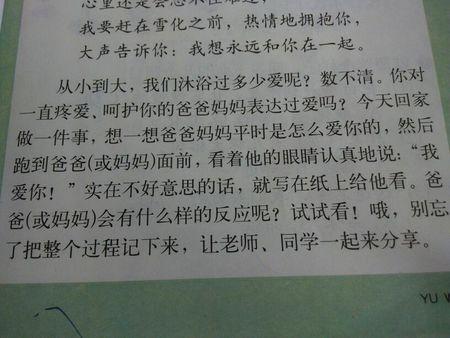 心里还是会忍不住难过，
我要赶在雪化之前，热情地拥抱你，
大声告诉你：我想永远和你在一起。
从小到大，我们沐浴过多少爱呢？数不清。你对
一直疼爱、呵护你的爸爸妈妈表达过爱吗？今天回家
做一件事，想一想爸爸妈妈平时是怎么爱你的，然后
跑到爸爸(或妈妈)面前，看着他的眼睛认真地说：“我
爱你！”实在不好意思的话，就写在纸上给他看。爸
爸(或妈妈)会有什么样的反应呢？试试看！哦，别忘
了把整个过程记下来，让老师、同学一起来分享。
YU